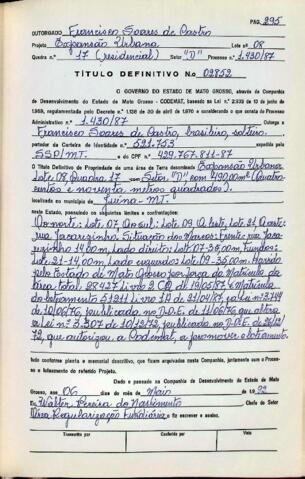 PAG. 295
OUTORGADO Francisco Soares de Castro
Projeto Expansão Urbana Lote nº 08
Quadra nº 17 (residencial) Setor "D" Processo 1.430/87
TÍTULO DEFINITIVO No 02852
O GOVERNO DO ESTADO DE MATO GROSSO, através da Companhia
de Desenvolvimento do Estado de Mato Grosso - CODEMAT, baseado na Lei n.º
1.430/87 outorga a
Francisco Soares de Castro, brasileiro, solteiro,
portador da Carteira de Identidade n.º 521.753 expedida pela
SSP/MT. e do CPF n.º 429.767.811-87
O Título Definitivo de Propriedade de uma área de terra denominada Expansão Urbana
Lote 08, Quadra 17 com Setor "D" com 490,00m² (Quatro-
centos e noventa metros quadrados).
localizada no município de Juína - MT.
neste Estado, possuindo os seguintes limites e confrontações:
Ao norte: Lote 07, Ao sul: Lote 09, A leste: Lote 21, A oeste:
Situação dos Marcos: Frente: rua
14,00m. Lado direito: Lote 07-35,00m. Fundos:
Lote 21-14,00m. Lado esquerdo: Lote 09-35,00m. Havido
pelo Estado de Mato Grosso por força da Matrícula da
área total 28427 Livro 2 CQ de 19/05/87 e Matrícula
10/06/76, publicada no D.O.E. de 11/06/76, que altera
a Lei nº 3.307 de 10/12/72, publicada no D.O.E. de 26/12/
72, que autorizou a Codemat, a promover o loteamento.
Tudo conforme planta e memorial descritivo, que ficam arquivados nesta Companhia, juntamente com o Proces-
so e loteamento do referido Projeto.
Dado e passado na Companhia de Desenvolvimento do Estado de Mato
Grosso, aos 06 dias do mês de Maio de 1922
Eu, Walter Pereira do Nascimento Chefe do Setor
Regularização Fundiária fiz escrever e assino.
Transcrito por Conferido por Visto